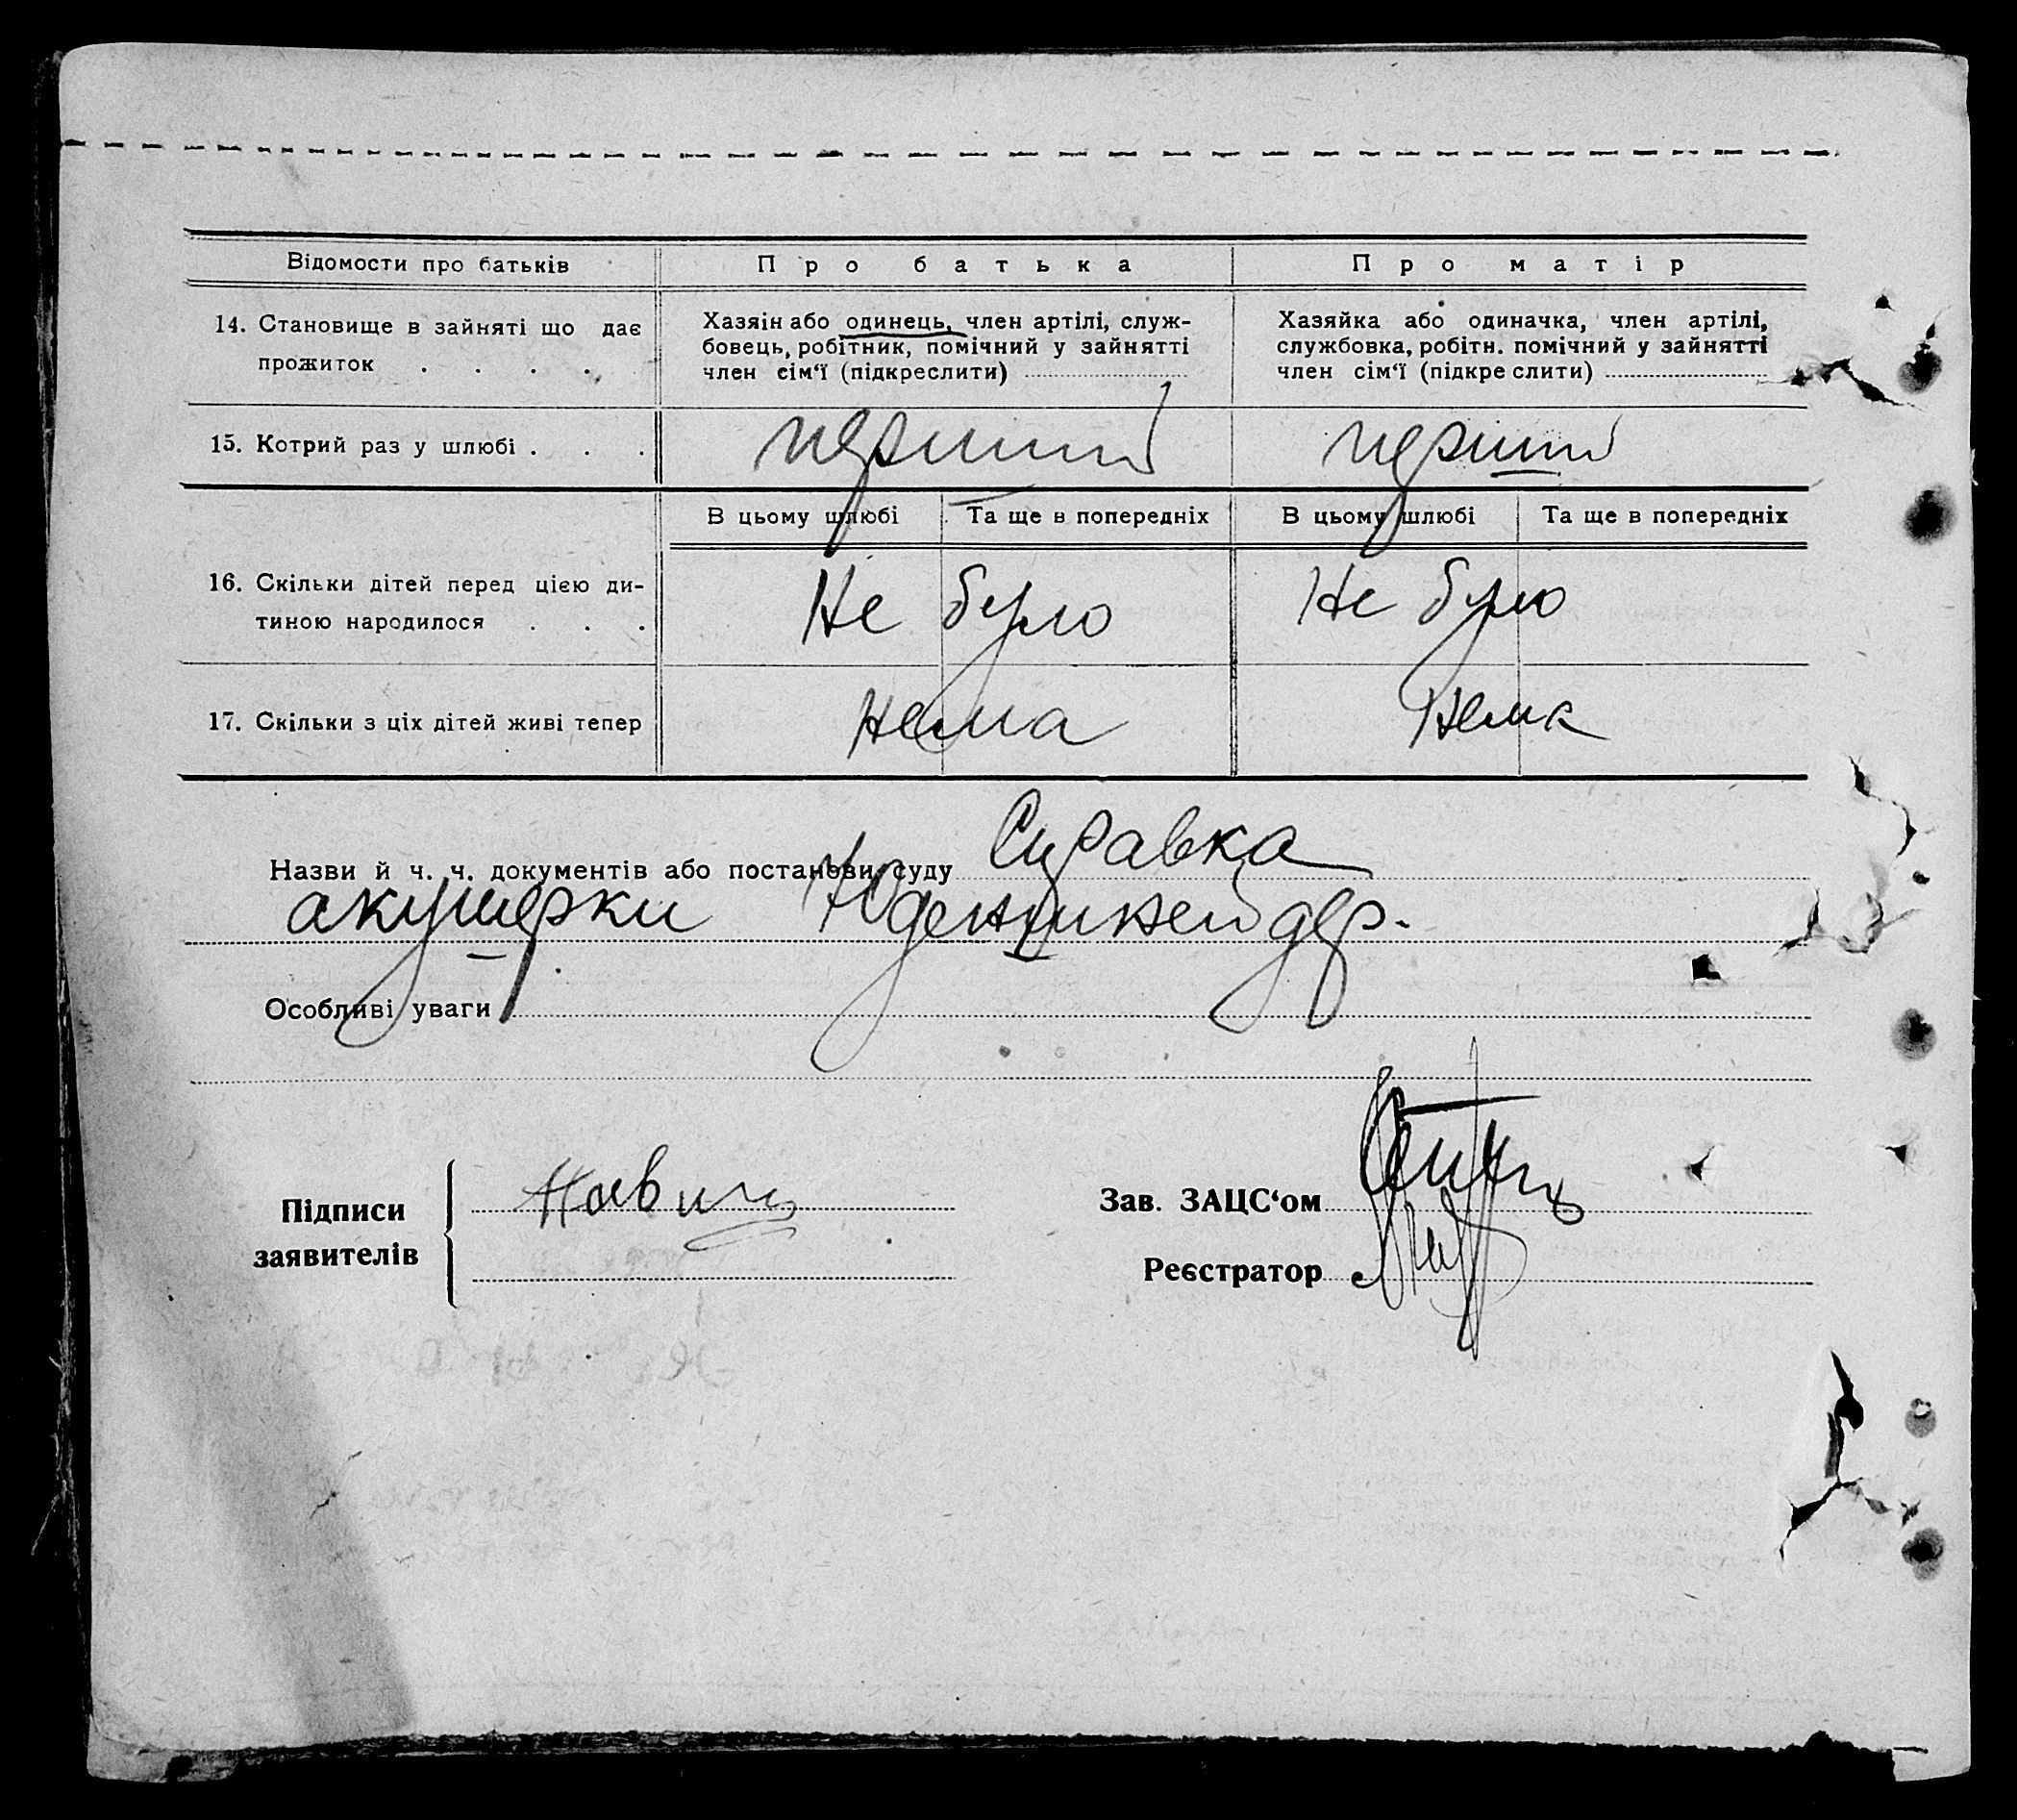 Відомости про батьків
Про батька
Про матір
14. Становище в зайняті що дає
прожиток . . . .
Хазяін або одинець, член артілі, служ-
бовець, робітник, помічний у зайнятті
член сім‘ї (підкреслити)
Хазяйка або одиначка, член артілі,
службовка, робітн. помічний у зайнятті
член сім‘ї (підкре слити)
15. Котрий раз у шлюбі . . .
перший
перший
В цьому шлюбі
Та ще в попередніх
В цьому шлюбі
Та ще в попередніх
16. Скільки дітей перед цією ди-
тиною народилося . . .
Не було
Не було
17. Скільки з ціх дітей живі тепер
нема
нема
Назви й ч. ч. документів або постанови суду Справка
акушерки
Особливі уваги
Підписи
заявителів
Зав. ЗАЦС‘ом
Реєстратор